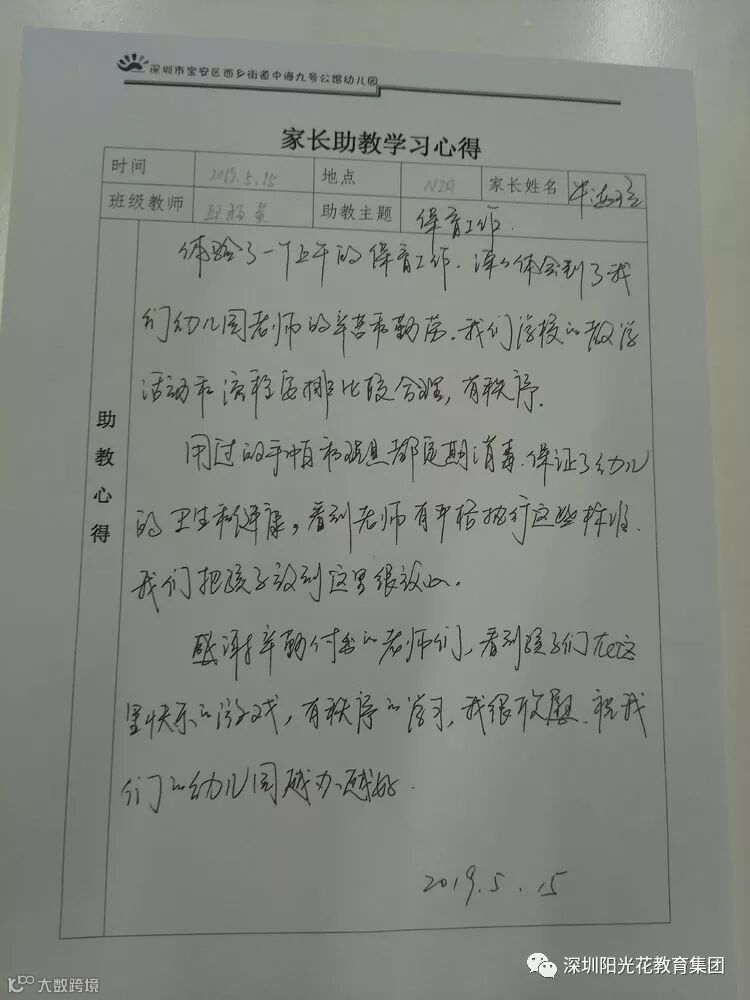 深圳市宝安区西乡街道中海九号公馆幼儿园
家长助教学习心得
时间 2019.5.15 地点 N2A 家长姓名 牛
班级教师 助教主题 保育工作.
助教心得
体验了一个上午的保育工作.深深体会到了我
们幼儿园老师的辛苦和勤劳.我们学校的教学
活动和流程安排比较合理,有秩序.
用过的手帕和玩具都定期消毒.保证了幼儿
的卫生和健康,看到老师有严格执行这些标准.
我们把孩子放到这里很放心.
感谢辛勤付出的老师们,看到孩子们在这
里快乐的游戏,有秩序的学习,我很欣慰.祝我
们的幼儿园越办越好.
2019.5.15
深圳阳光花教育集团
大数跨境